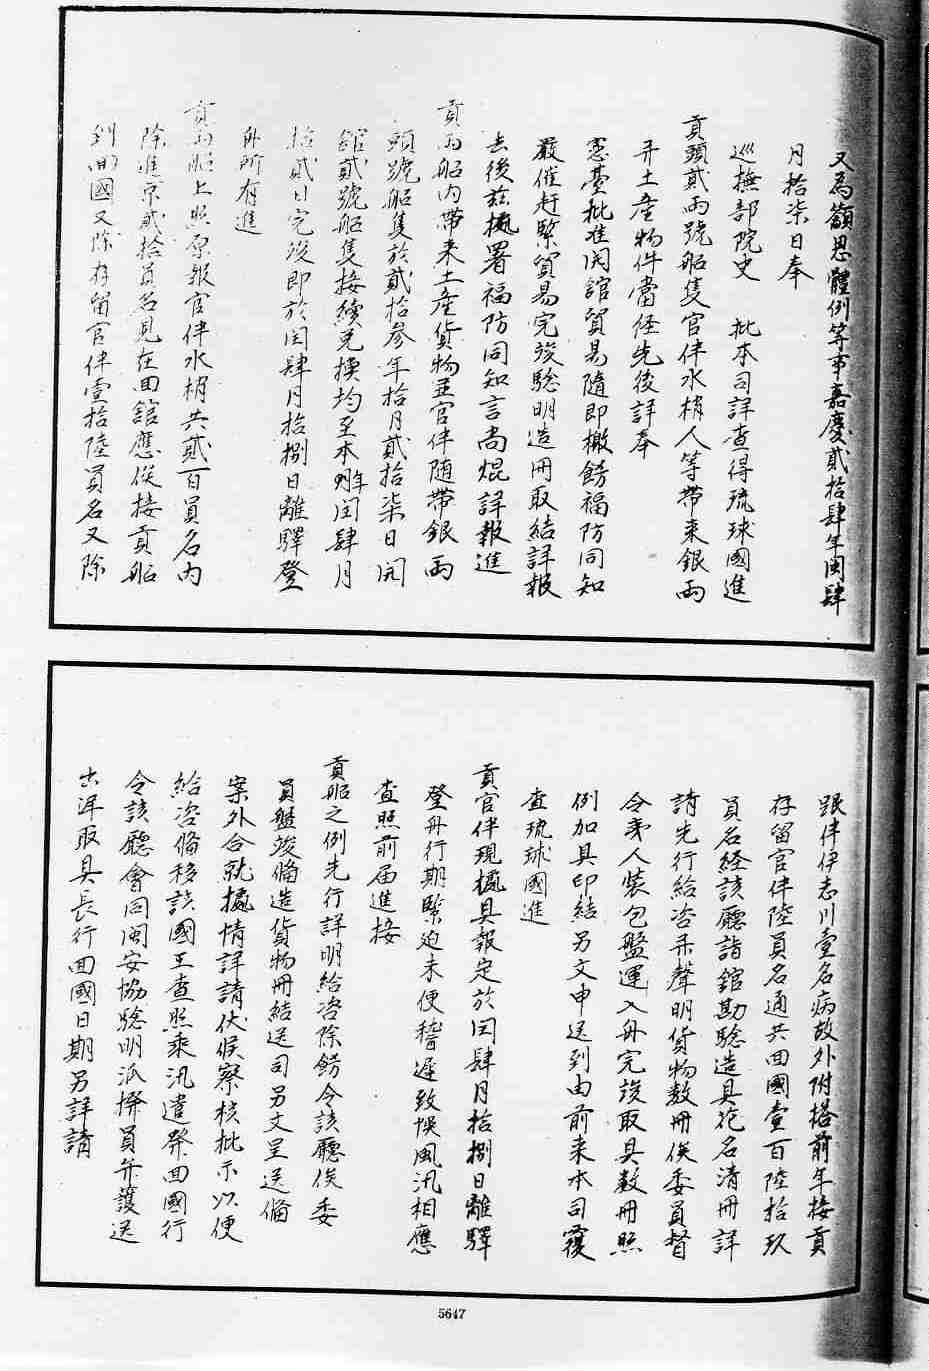 又為籲恩體例等事嘉慶貳拾肆年閏肆
月拾柒日奉
巡撫部院史　批本司詳查得琉球國進
貢頭貳兩號船隻官伴水梢人等帶來銀兩
并土産物件當経先後詳奉
憲臺批准開館貿易隨即檄飭福防同知
嚴催赶緊貿易完竣驗明造冊取結詳報
去後兹據署福防同知言尚焜詳報進
貢兩船内帶来土産貨物並官伴随帶銀兩
頭號船隻於貳拾叁年拾月貳拾柒日開
舘貳號船隻接續兑換均至本年閏肆月
拾貳日完竣即於閏肆月拾捌日離驛登
舟所有進
貢兩船上照原報官伴水梢共貳百員名内
除進京貳拾員名見在回舘應俟接貢船
到回國又除存留官伴壹拾陸員名又除
跟伴伊志川壹名病故外附搭前年接貢
存留官伴陸員名通共回國壹百陸拾玖
員名経該廳詣舘勘驗造具花名清冊詳
請先行給咨并聲明貨物數冊俟委員督
令夷人裝包盤運入舟完竣取具數冊照
例加具印結另文申送到由前来本司覆
查琉球國進
貢官伴現據具報定於閏肆月拾捌日離驛
登舟行期緊迫未便稽遲致悞風汛相應
查照前届進接
貢船之例先行詳明給咨除飭令該廳俟委
員盤竣備造貨物冊結送司另文呈送備
案外合就據情詳請伏候察核批示以便
給咨備移該國王查照乘汛遣發回國行
令該廳會同閩安協驗明派撥員弁護送
出洋取具長行回國日期另詳請
5647